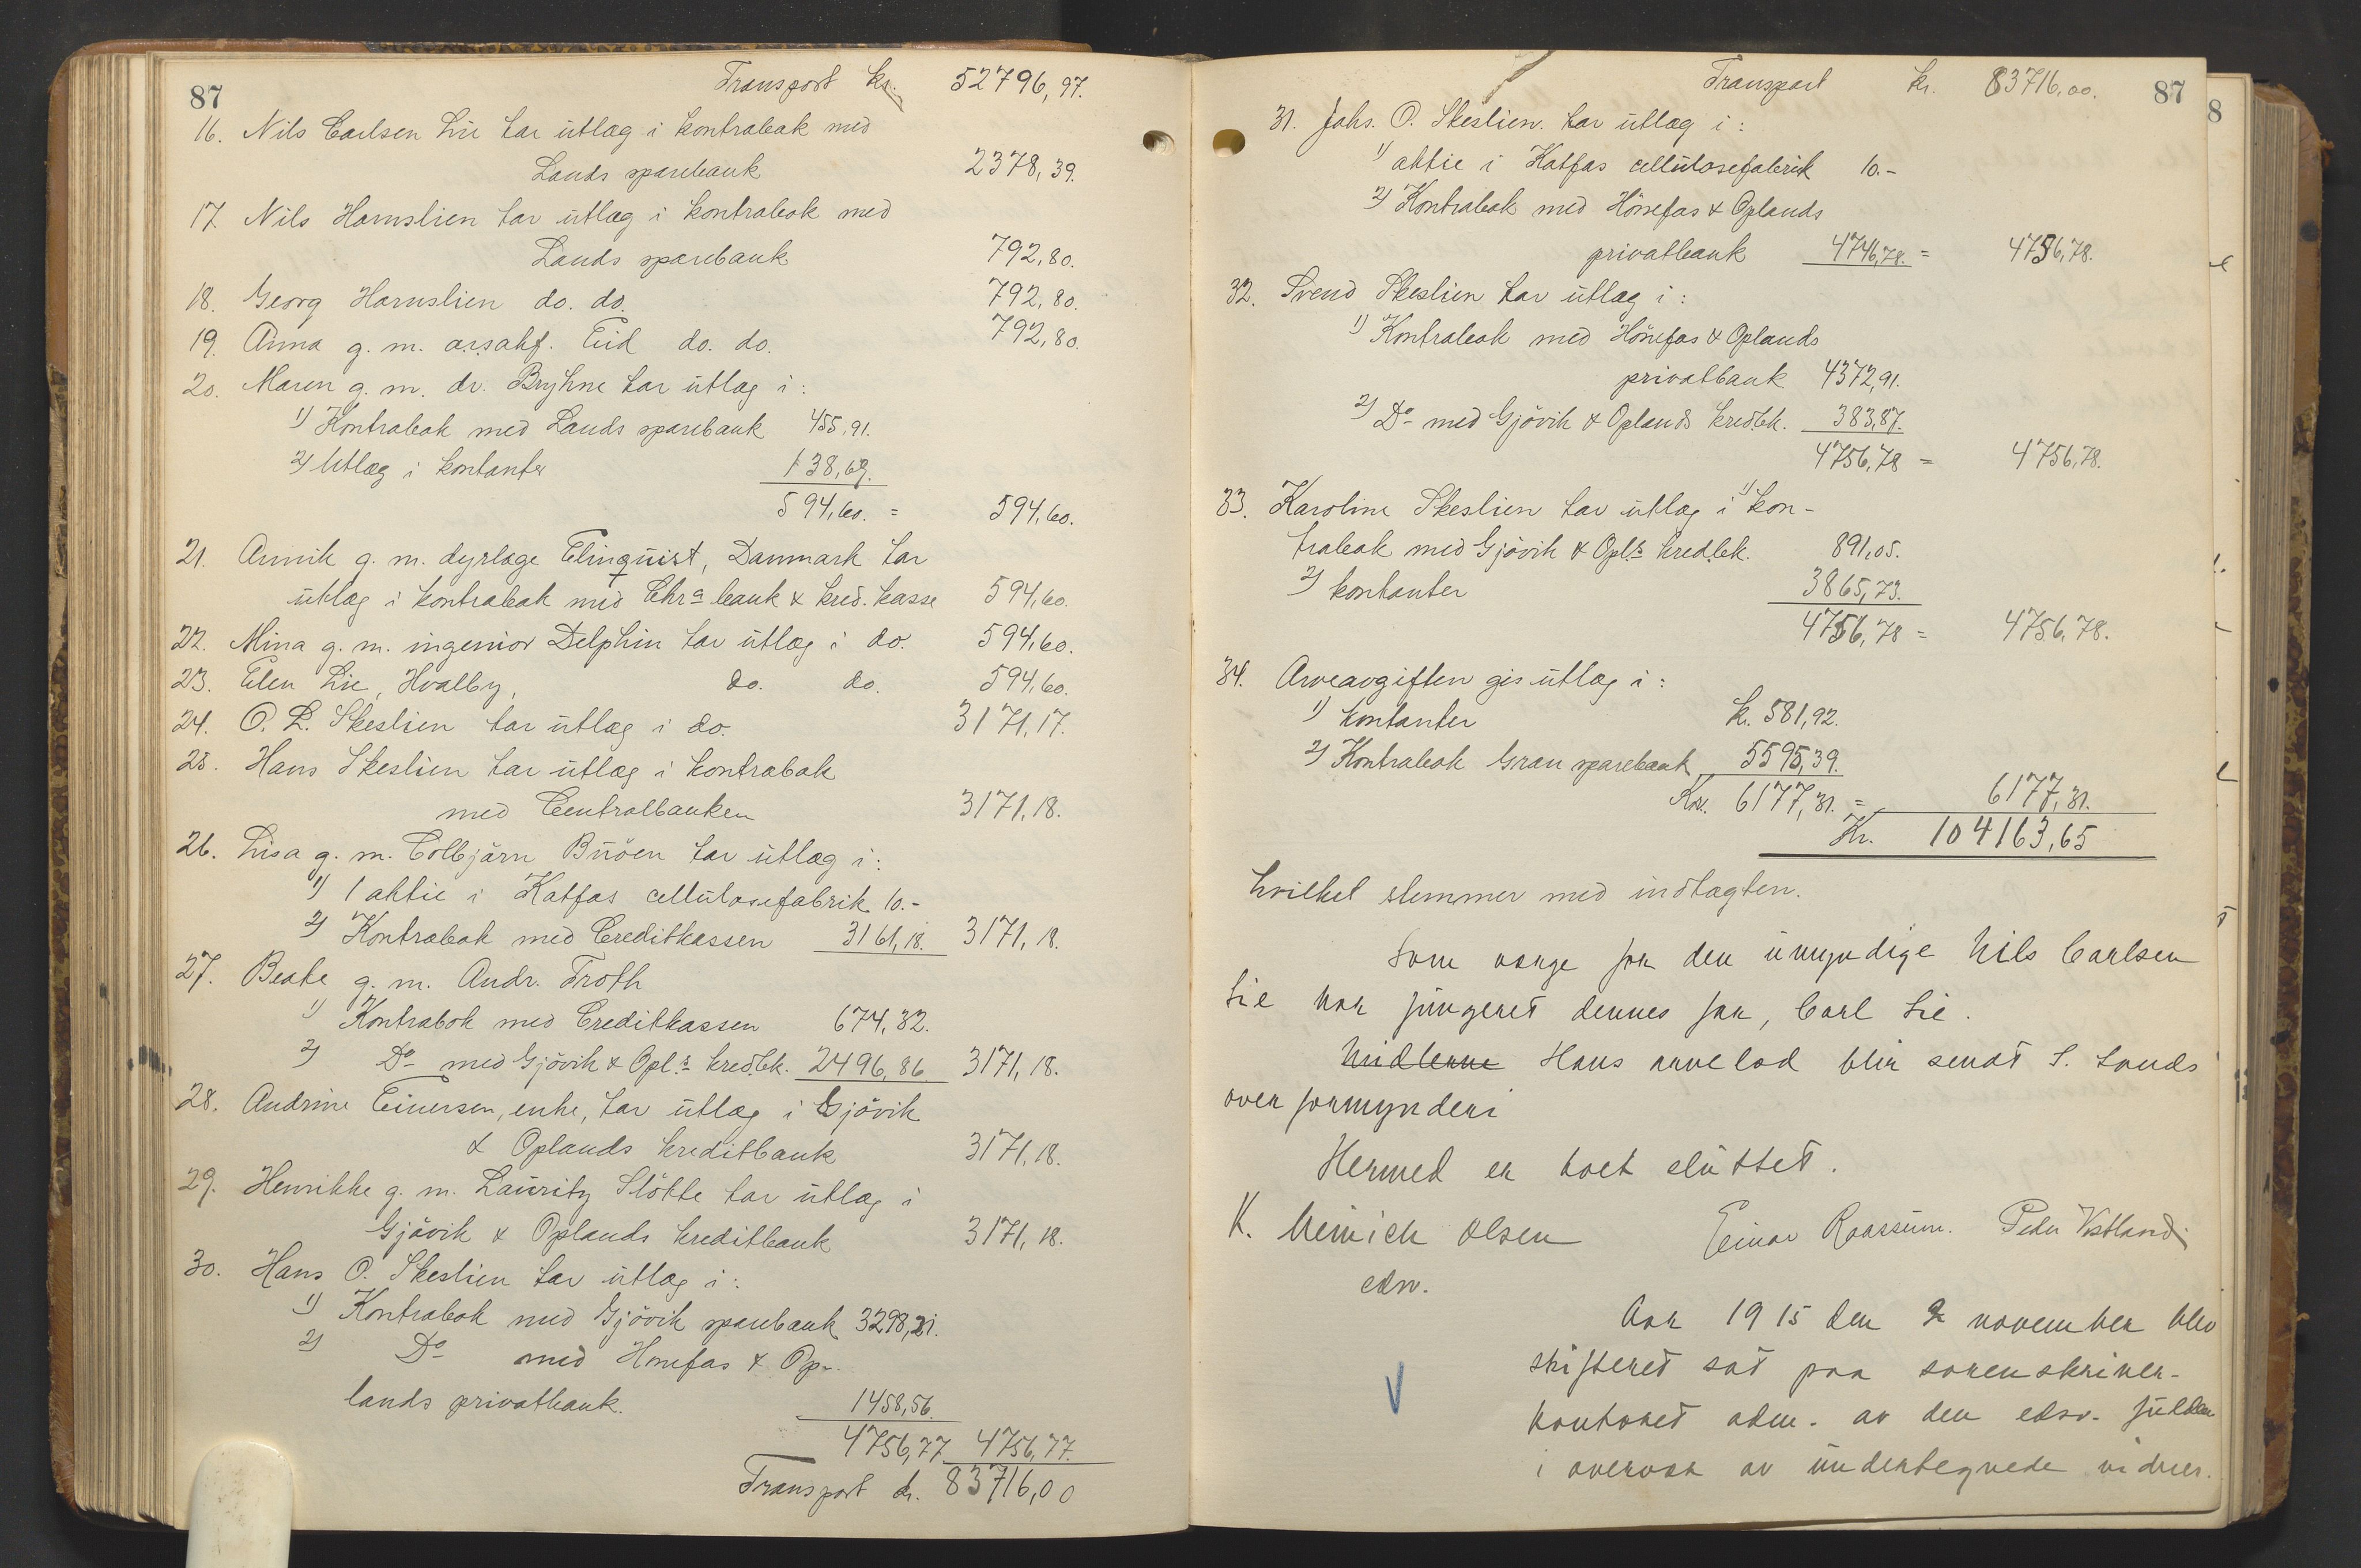 87
Transport kr. 52796,97.
16. Nils Carlsen Lie tar utlæg i kontrabok med
Lands sparebank 2378,39.
17. Nils Harnslien tar utlæg i kontrabok med
Lands sparebank 792,80.
18. Georg Harnslien do. do. 792,80.
19. Anna g. m. assahf. Eid do. do. 792,80.
20. Maren g. m. dr. Bryhne tar utlæg i:
1) Kontrabok med Lands sparebank 455,91.
2) Utlæg i kontanter 138,69.
594,60. = 594,60.
21. Annik g. m. dyrlæge Elinquist, Danmark tar
utlæg i kontrabok med Chra bank & kred. kasse 594,60.
22. Mina g. m. ingeniør Delphin tar utlæg i do. 594,60.
23. Elen Lie, Hvalby, do. do. 594,60.
24. O. L. Skeslien tar utlæg i do. 3171,17.
25. Hans Skeslien tar utlæg i kontrabok
med Centralbanken 3171,18.
26. Lisa g. m. Tolbjørn Buöen tar utlæg i:
1) 1 aktie i Katfos cellulosefabrik 10.-
2) Kontrabok med Creditkassen 3161,18. 3171,18.
27. Beate g. m. Andr. Troth
1) Kontrabok med Creditkassen 674,32.
2) Do med Gjövik & Opl.s kredbk. 2496,86 3171,18.
28. Andrine Einersen, enke, tar utlæg i Gjövik
& Oplands kreditbank 3171,18.
29. Henrikke g. m. Lauritz Slötte tar utlæg i
Gjövik & Oplands kreditbank 3171,18.
30. Hans O. Skeslien tar utlæg i:
1) Kontrabok med Gjövik sparebank 3298,21.
2) Do med Hönefos & Op-
lands privatbank. 1458,56.
4756,77 4756,77.
Transport kr. 83716,00
Transport kr. 83716,00. 87
8
31. Johs. O. Skeslien tar utlæg i:
1) aktie i Katfos cellulosefabrik 10.-
2) Kontrabok med Hönefos & Oplands
privatbank 4746,78. = 4756,78.
32. Svend Skeslien tar utlæg i:
1) Kontrabok med Hönefos & Oplands
privatbank 4372,91.
2) Do med Gjövik & Oplands kredbk. 383,87.
4756,78 = 4756,78.
33. Karoline Skeslien tar utlæg i 1) kon-
trabok med Gjövik & Opl.s kredbk. 891,05.
2) kontanter 3865,73.
4756,78 = 4756,78.
34. Arveavgiften gis utlæg i:
1) kontanter k. 581,92.
2) Kontrabok Gran sparebank 5595,39.
Kr. 6177,31. = 6177,31.
Kr. 104163,65
hvilket stemmer med indtægten.
Som værge for den umyndige Nils Carlsen
Lie har fungeret dennes far, Carl Lie.
Midlerne Hans arvelod blir sendt S. Lands
overformynderi
Hermed er boet sluttet.
K. Meinich Olsen Einar Raassum. Peder Vestland
edsv.
Aar 1915 den 2 november blev
skifteret sat paa sorenskriver-
kontoret adm. av den edsv. fuldm
i overvær av undertegnede vidner.